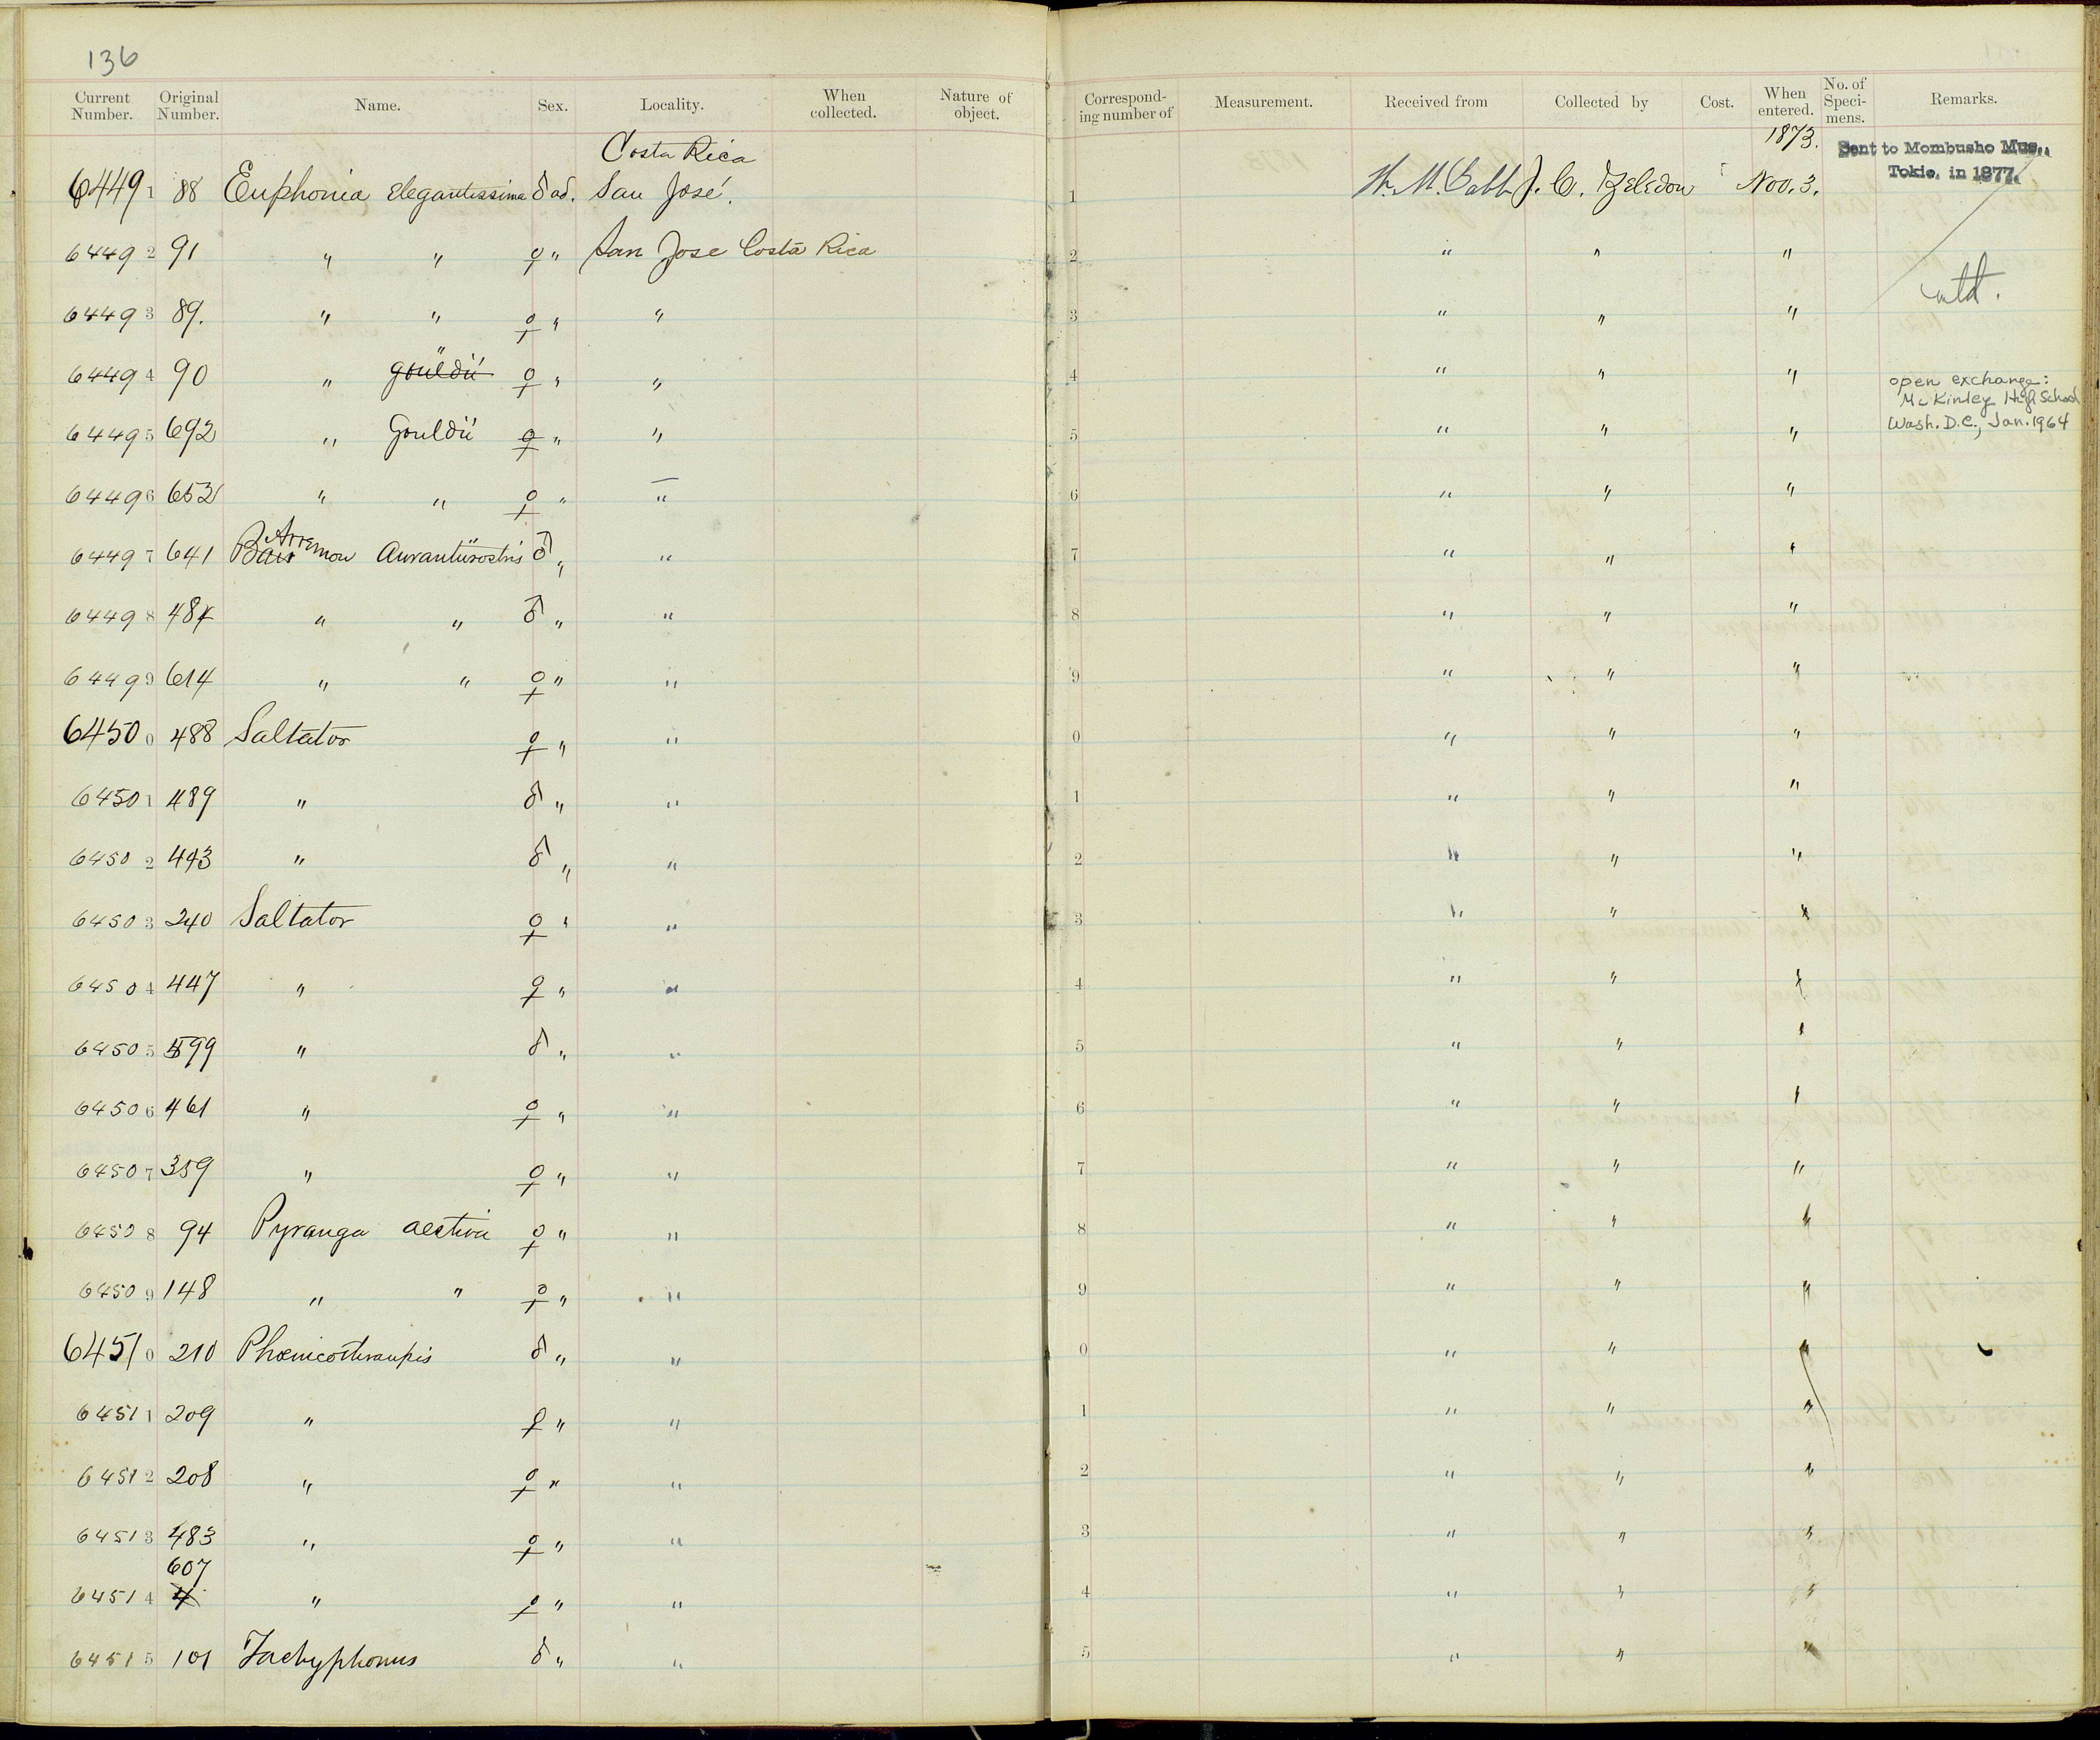 136
Current Number. Original Number. Name. Sex. Locality. When collected. Nature of object. Corresponding number of Measurement. Received from Collected by Cost. When entered. No. of Specimens. Remarks.
Costa Rica 1873. Sent to Mombusho Mus., Tokio, in 1877.
64491 88 Euphonia elegantissima ♂ ad. San José. 1 W. M. Gabb J. C. Zeledon Nov. 3.
64492 91 " " ♀ " San Jose Costa Rica 2 " " "
64493 89. " " ♀ " " 3 " " " mtd.
64494 90 " " gouldii ♀ " " 4 " " " open exchange: McKinley High School
64495 692 " Gouldii ♀ " " 5 " " " Wash. D.C., Jan. 1964
64496 652 " " ♀ " " 6 " " "
64497 641 Arremon Aurantiirostris ♂ " " 7 " " "
64498 484 " " ♂ " " 8 " " "
64499 614 " " ♀ " " 9 " " "
64500 488 Saltator ♀ " " 0 " " "
64501 489 " ♂ " " 1 " " "
64502 443 " ♂ " " 2 " " "
64503 240 Saltator ♀ " " 3 " " "
64504 447 " ♀ " " 4 " " "
64505 599 " ♂ " " 5 " " "
64506 461 " ♀ " " 6 " " "
64507 359 " ♀ " " 7 " " "
64508 94 Pyranga aestiva ♀ " " 8 " " "
64509 148 " " ♀ " " 9 " " "
64510 210 Phoenicothraupis ♂ " " 0 " " "
64511 209 " ♀ " " 1 " " "
64512 208 " ♀ " " 2 " " "
64513 483 " ♀ " " 3 " " "
64514 607 " ♀ " " 4 " " "
64515 101 Tachyphonus ♂ " " 5 " " "